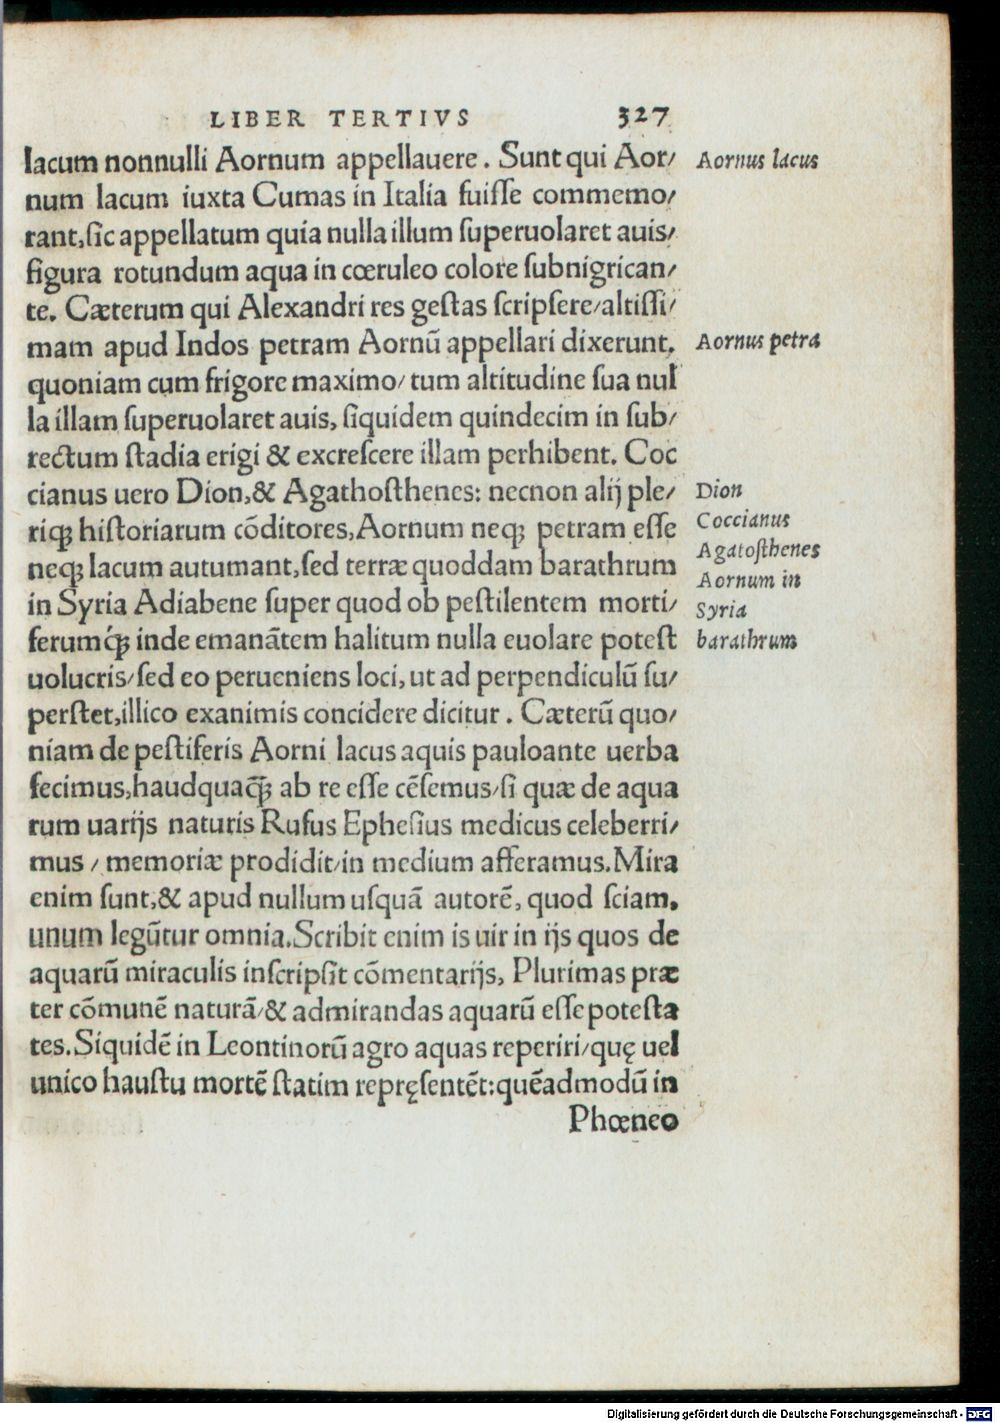 LIBER TERTIVS 327
lacum nonnulli Aornum appellauere. Sunt qui Aor/
num lacum iuxta Cumas in Italia fuiſſe commemo/
rant, ſic appellatum quia nulla illum ſuperuolaret auis/
figura rotundum aqua in cœruleo colore ſubnigrican/
te. Cæterum qui Alexandri res geſtas ſcripſere/altiſſi/
mam apud Indos petram Aornũ appellari dixerunt.
quoniam cum frigore maximo/ tum altitudine ſua nul
la illam ſuperuolaret auis, ſiquidem quindecim in ſub/
rectum ſtadia erigi & excreſcere illam perhibent. Coc
cianus uero Dion,& Agathoſthenes: necnon alij ple/
riqꝫ hiſtoriarum cõditores, Aornum neqꝫ petram eſſe
neqꝫ lacum autumant, ſed terræ quoddam barathrum
in Syria Adiabene ſuper quod ob peſtilentem morti/
ferumq́ꝫ inde emanãtem halitum nulla euolare poteſt
uolucris/ſed eo perueniens loci, ut ad perpendiculũ ſu/
perſtet, illico exanimis concidere dicitur. Cæterũ quo/
niam de peſtiferis Aorni lacus aquis pauloante uerba
fecimus, haudquaq̃ꝫ ab re eſſe cẽſemus/ſi quæ de aqua
rum uarijs naturis Rufus Epheſius medicus celeberri/
mus / memoriæ prodidit/in medium afferamus. Mira
enim ſunt,& apud nullum uſquã autorẽ, quod ſciam.
unum legũtur omnia. Scribit enim is uir in ijs quos de
aquarũ miraculis inſcripſit cõmentarijs, Plurimas præ
ter cõmunẽ naturã/& admirandas aquarũ eſſe poteſta
tes. Siquidẽ in Leontinorũ agro aquas reperiri/quę uel
unico hauſtu mortẽ ſtatim repręſentẽt: quẽadmodũ in
Phœneo
Aornus lacus
Aornus petra
Dion
Coccianus
Agatoſthenes
Aornum in
Syria
barathrum
Digitalisierung gefördert durch die Deutsche Forschungsgemeinschaft - DFG